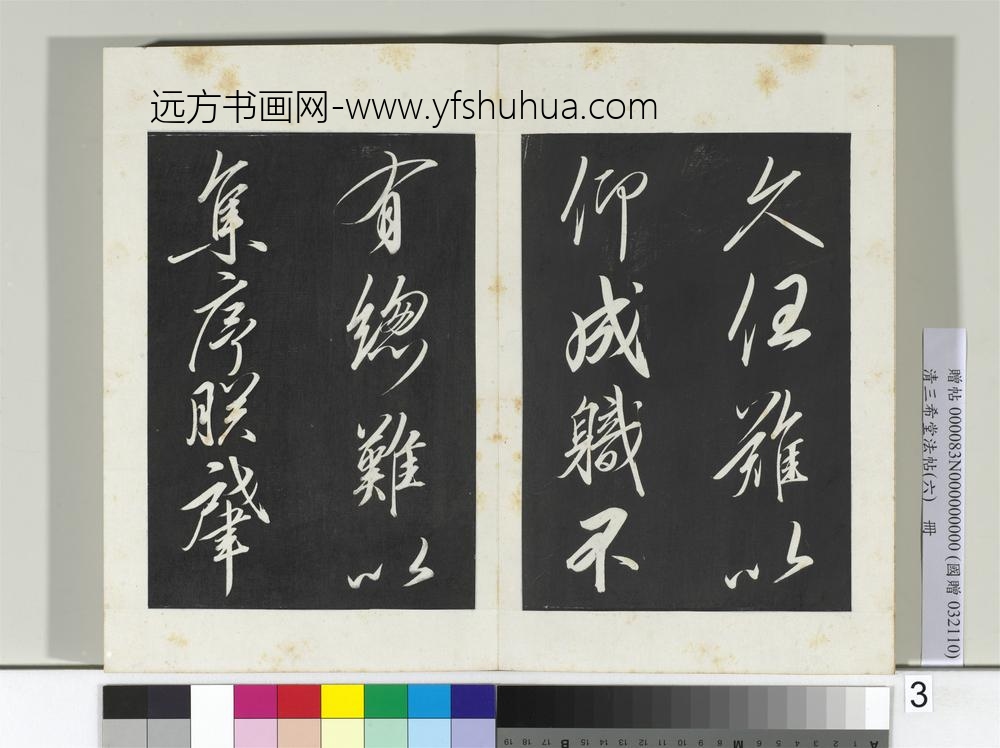 远方书画网-www.yfshuhua.com
久任難以
仰成職不
有總難以
集序朕肇
贈帖 000083N000000000 (國贈 032110)
清三希堂法帖(六) 冊
3
A 1 2 3 4 5 6 M 8 9 10 11 12 13 14 15 B 17 18 19